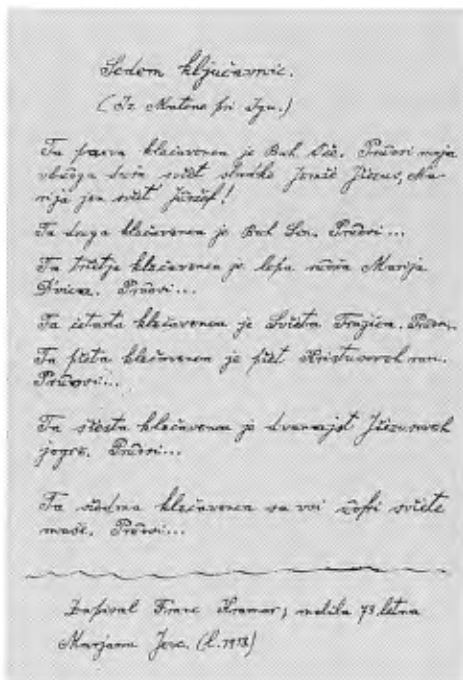 Sedem ključavnic.
(Iz Matene pri Igu.)
Ta parva klečavenca je Buh Oče. Pridri moja
vbuoga duša sviet sladko Jemie Jiezus, Ma-
rija jen sviet Jüežef!
Ta druga klečavenca je Buh Sin. Pridri...
Ta trietja klečavenca je lepa ruoža Marija
Dvica. Pridri...
Ta četarta klečavenca je Svieta Trojica. Pridri...
Ta pieta klečavenca je piet Kristusoveh ran.
Pridri...
Ta siesta klečavenca je dvanajst Jiezusoveh
jogrov. Pridri...
Ta siedma klečavenca so vsi cofri sviete
maše. Pridri...
Zapisal Franc Kramar, molila 73 letna
Marjana Jere. (l. 1912)